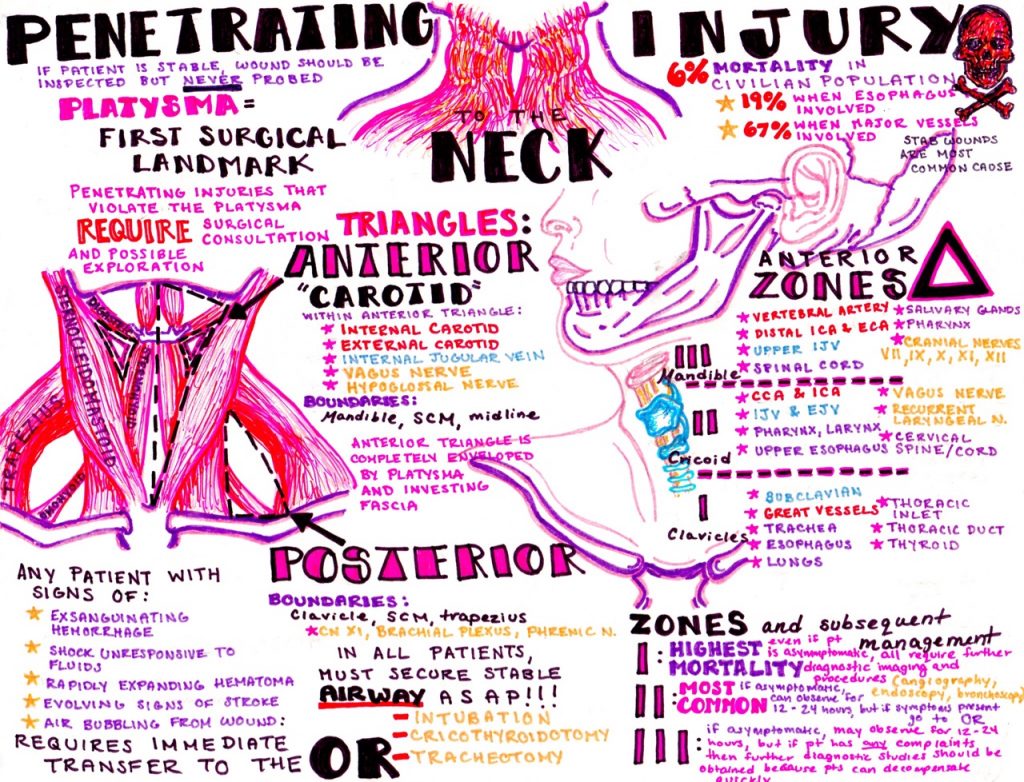 PENETRATING INJURY
TO THE
NECK
IF PATIENT IS STABLE, WOUND SHOULD BE
INSPECTED BUT NEVER PROBED
PLATYSMA =
FIRST SURGICAL
LANDMARK
PENETRATING INJURIES THAT
VIOLATE THE PLATYSMA
REQUIRE SURGICAL
CONSULTATION
AND POSSIBLE
EXPLORATION
6% MORTALITY IN
CIVILIAN POPULATION
19% WHEN ESOPHAGUS
INVOLVED
67% WHEN MAJOR VESSELS
INVOLVED
STAB WOUNDS
ARE MOST
COMMON CAUSE
TRIANGLES:
ANTERIOR
"CAROTID"
WITHIN ANTERIOR TRIANGLE:
INTERNAL CAROTID
EXTERNAL CAROTID
INTERNAL JUGULAR VEIN
VAGUS NERVE
HYPOGLOSSAL NERVE
BOUNDARIES:
Mandible, SCM, midline
ANTERIOR TRIANGLE IS
COMPLETELY ENVELOPED
BY PLATYSMA
AND INVESTING
FASCIA
STERNOCLEIDOMASTOID
DIGASTRIC
OMOHYOID
TRAPEZIUS
OMOHYOID
POSTERIOR
BOUNDARIES:
Clavicle, SCM, trapezius
CN XI, BRACHIAL PLEXUS, PHRENIC N.
IN ALL PATIENTS,
MUST SECURE STABLE
AIRWAY ASAP!!!
INTUBATION
CRICOTHYROIDOTOMY
TRACHEOTOMY
ANY PATIENT WITH
SIGNS OF:
EXSANGUINATING
HEMORRHAGE
SHOCK UNRESPONSIVE TO
FLUIDS
RAPIDLY EXPANDING HEMATOMA
EVOLVING SIGNS OF STROKE
AIR BUBBLING FROM WOUND:
REQUIRES IMMEDIATE
TRANSFER TO THE OR
ANTERIOR
ZONES
III
VERTEBRAL ARTERY
DISTAL ICA & ECA
UPPER IJV
SPINAL CORD
SALIVARY GLANDS
PHARYNX
CRANIAL NERVES
VII, IX, X, XI, XII
Mandible
II
CCA & ICA
IJV & EJV
PHARYNX, LARYNX
UPPER ESOPHAGUS
VAGUS NERVE
RECURRENT
LARYNGEAL N.
CERVICAL
SPINE/CORD
Cricoid
I
SUBCLAVIAN
GREAT VESSELS
TRACHEA
ESOPHAGUS
LUNGS
THORACIC
INLET
THORACIC DUCT
THYROID
Clavicles
ZONES and subsequent
management
I: HIGHEST
MORTALITY
even if pt
is asymptomatic, all require further
diagnostic imaging and
procedures (angiography,
endoscopy, bronchoscopy)
II: MOST
COMMON
if asymptomatic,
can observe for
12-24 hours, but if symptoms present
go to OR
III: if asymptomatic, may observe for 12-24
hours, but if pt has any complaints
then further diagnostic studies should be
obtained because pts can decompensate
quickly